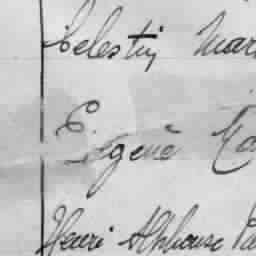 Celestin Mar
Eugène Ca
Henri Alphonse Ca